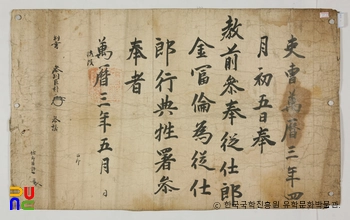 吏曹萬曆三年四
月初五日奉
敎前參奉從仕郎
金富倫為從仕
郎行典牲署參
奉者
萬曆三年五月 日
ⓒ 한국국학진흥원 유학문화박물관